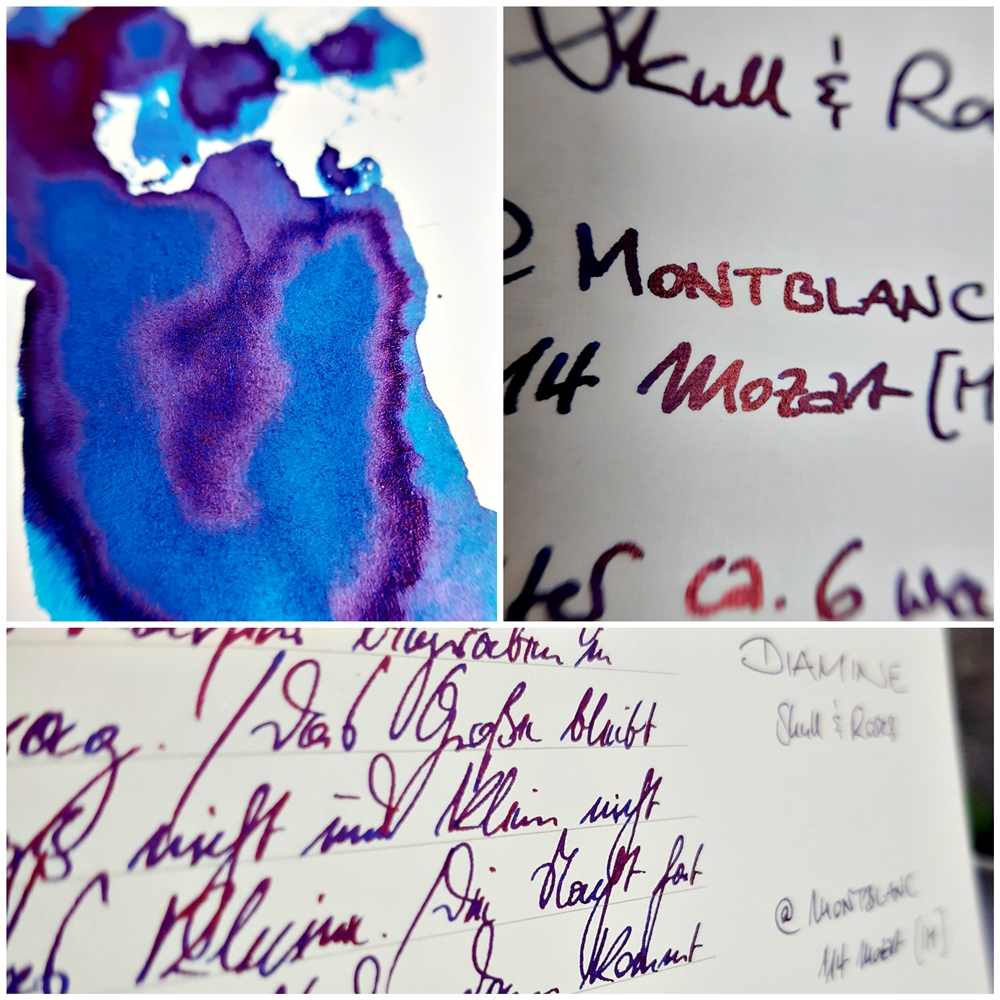 Skull & Ro
@ MONTBLANC
114 Mozart [M
ca. 6
begraben in
rag. / Das Große bleibt
oß nicht und klein nicht
Kleine. / Die Nacht hat
dann kommt
DIAMINE
Skull & Roses
@ MONTBLANC
114 Mozart [M]